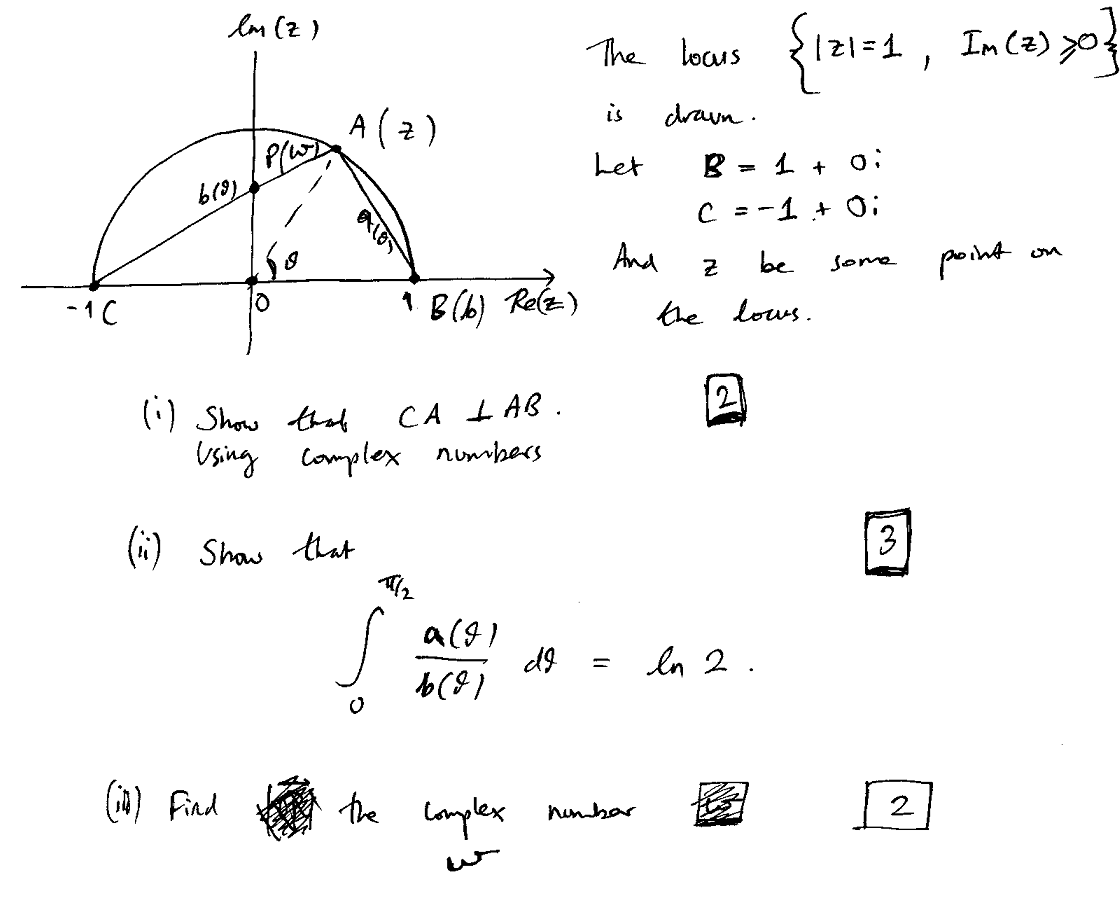 Im(z)
The locus {|z|=1, Im(z)≥0}
is drawn.
A(z)
P(w)
b(θ)
a(θ)
θ
-1 C
0
1
B(b)
Re(z)
Let B = 1 + 0i
C = -1 + 0i
And z be some point on
the locus.
(i) Show that CA ⊥ AB.
Using complex numbers
2
(ii) Show that
3
∫₀^{π/2} a(θ)/b(θ) dθ = ln 2.
(iii) Find the complex number
w
2